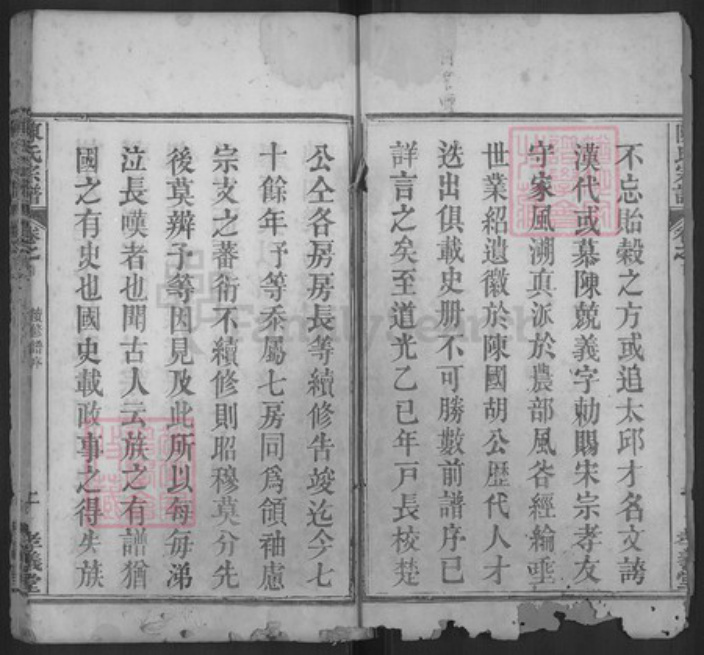 不忘貽榖之方或追太邱才名文誇
漢代或慕陳兢義字勅賜宋宗孝友
守家風溯真派於農部風谷經綸垂
世業紹遺徽於陳國胡公歷代人才
迭出俱載史册不可勝數前譜序已
詳言之矣至道光乙巳年戸長校楚
公仝各房房長等續修告竣迄今七
十餘年予等忝屬七房同爲領袖慮
宗支之蕃衍不續修則昭穆莫分先
後莫辨予等因見及此所以每每涕
泣長嘆者也聞古人云族之有譜猶
國之有史也國史載政事之得失族
陳氏宗譜
卷之
孝義堂
FamilySearch